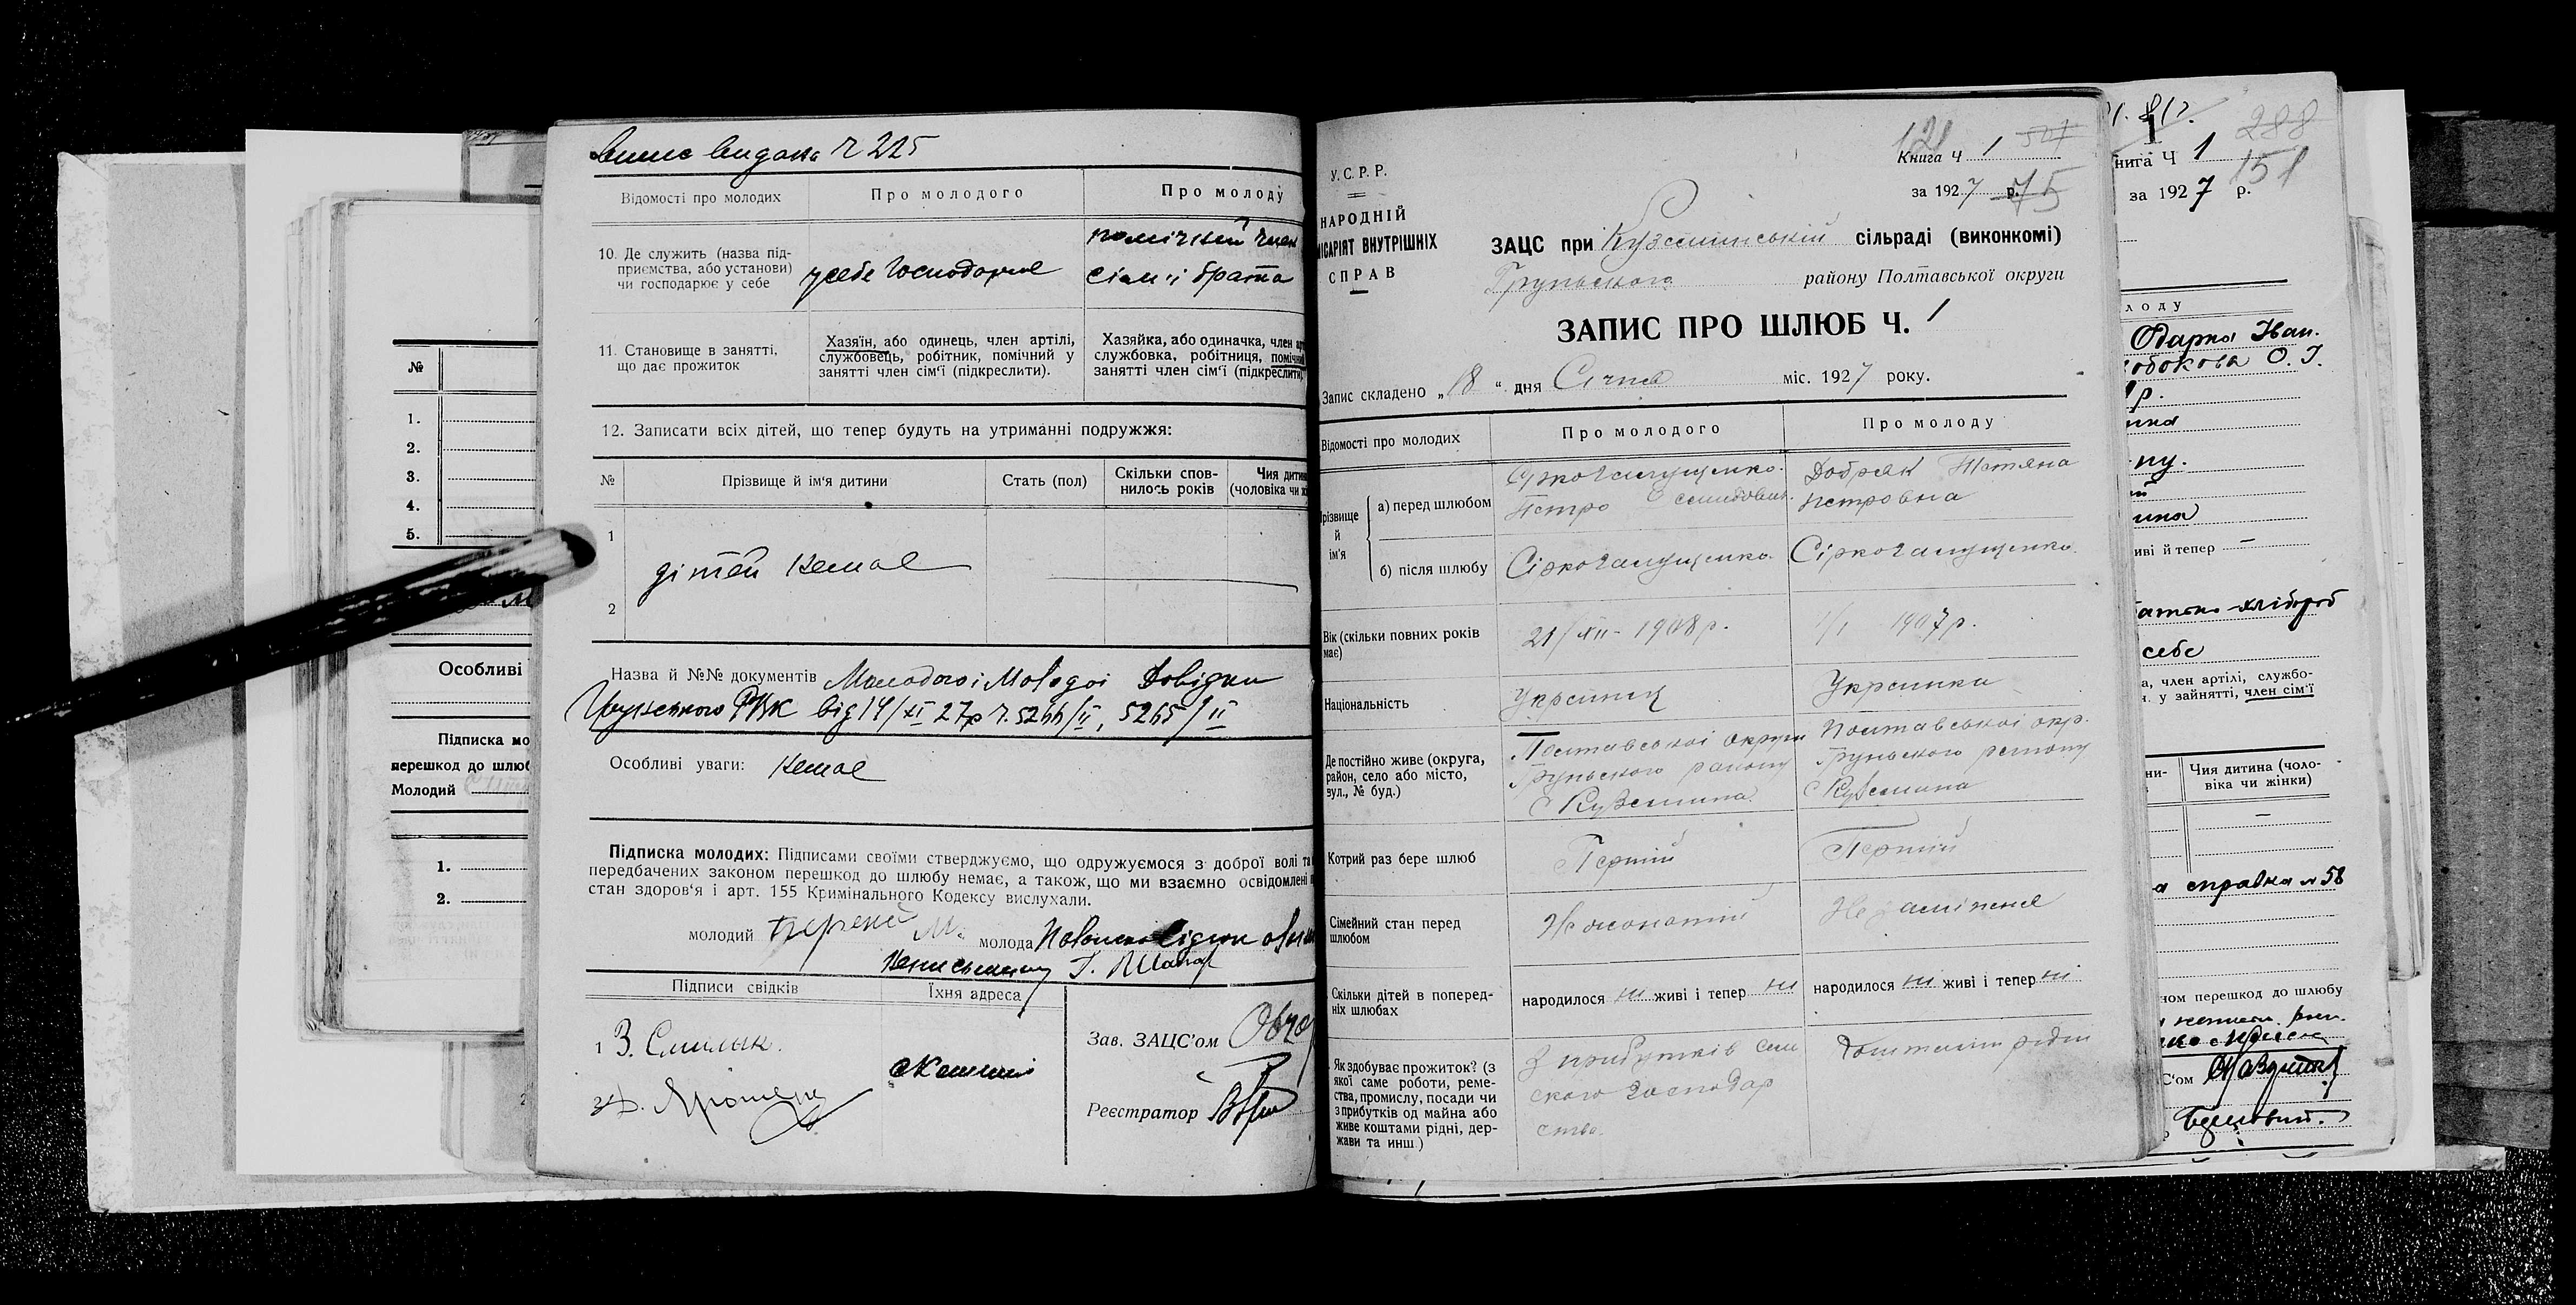 №
1.
2.
3.
4.
5.
Особливі
Підписка мо
перешкод до шлюб
Молодий
1.
2.
випис видана ч 225
Відомості про молодих
Про молодого
Про молоду
10. Де служить (назва під-
приємства, або установи)
чи господарює у себе
у себе господарює
помічний член
сім'ї брата
11. Становище в занятті,
що дає прожиток
Хазяїн, або одинець, член артілі,
службовець, робітник, помічний у
занятті член сім'ї (підкреслити).
Хазяйка, або одиначка, член ар
службовка, робітниця, помічний
занятті член сім'ї (підкреслити)
12. Записати всіх дітей, що тепер будуть на утриманні подружжя:
№
Прізвище й ім'я дитини
Стать (пол)
Скільки спов-
нилось років
Чия дитина
(чоловіка чи ж
1
дітей немає
2
Назва й №№ документів Молодого і Молодої Довідки
Грунського РВК від 14/XI 27р ч. 5266/II, 5265/II
Особливі уваги: немає
Підписка молодих: Підписами своїми стверджуємо, що одружуємося з доброї волі та
передбачених законом перешкод до шлюбу немає, а також, що ми взаємно освідомлені п
стан здоров'я і арт. 155 Кримінального Кодексу вислухали.
молодий
молода
Підписи свідків
Їхня адреса
1 З. Смилык.
2
Зав. ЗАЦС'ом
Реєстратор
121
Книга ч 1
за 1927 р. 75
У.С.Р.Р.
НАРОДНІЙ
МІСАРІЯТ ВНУТРІШНІХ
СПРАВ
ЗАЦС при Куземинській сільраді (виконкомі)
Грунського району Полтавської округи
ЗАПИС ПРО ШЛЮБ Ч. 1
Запис складено „18" дня Січня міс. 1927 року.
Відомості про молодих
Про молодого
Про молоду
Прізвище
й
ім'я
а) перед шлюбом
Сіркогалущенко
Петро
Добряк Тетяна
Петровна
б) після шлюбу
Сіркогалущенко.
Сіркогалущенко.
Вік (скільки повних років
має)
21/XII - 1908 р.
1/I 1907 р.
Національність
Українец
Українка
Де постійно живе (округа,
район, село або місто,
вул., № буд.)
Полтавської округи
Грунського району
с Куземина
Полтавської окр.
Грунського району
с Куземина
Котрий раз бере шлюб
Перший
Перший
Сімейний стан перед
шлюбом
Не жонатий
Не заміжня
Скільки дітей в поперед-
ніх шлюбах
народилося ні живі і тепер ні
народилося ні живі і тепер ні
Як здобуває прожиток? (з
якої саме роботи, реме-
ства, промислу, посади чи
з прибутків од майна або
живе коштами рідні, дер-
жави та инш.)
З прибутків сіль
ского господар
ства
Коштами рідни
288
нига Ч 1
151
за 1927 р.
лоду
Одарка Іван.
О. І.
иві й тепер –
хлібороб
себе
а, член артілі, службо-
н. у зайнятті, член сім'ї
Чия дитина (чоло-
віка чи жінки)
–
справка № 58
ном перешкод до шлюбу
С'ом